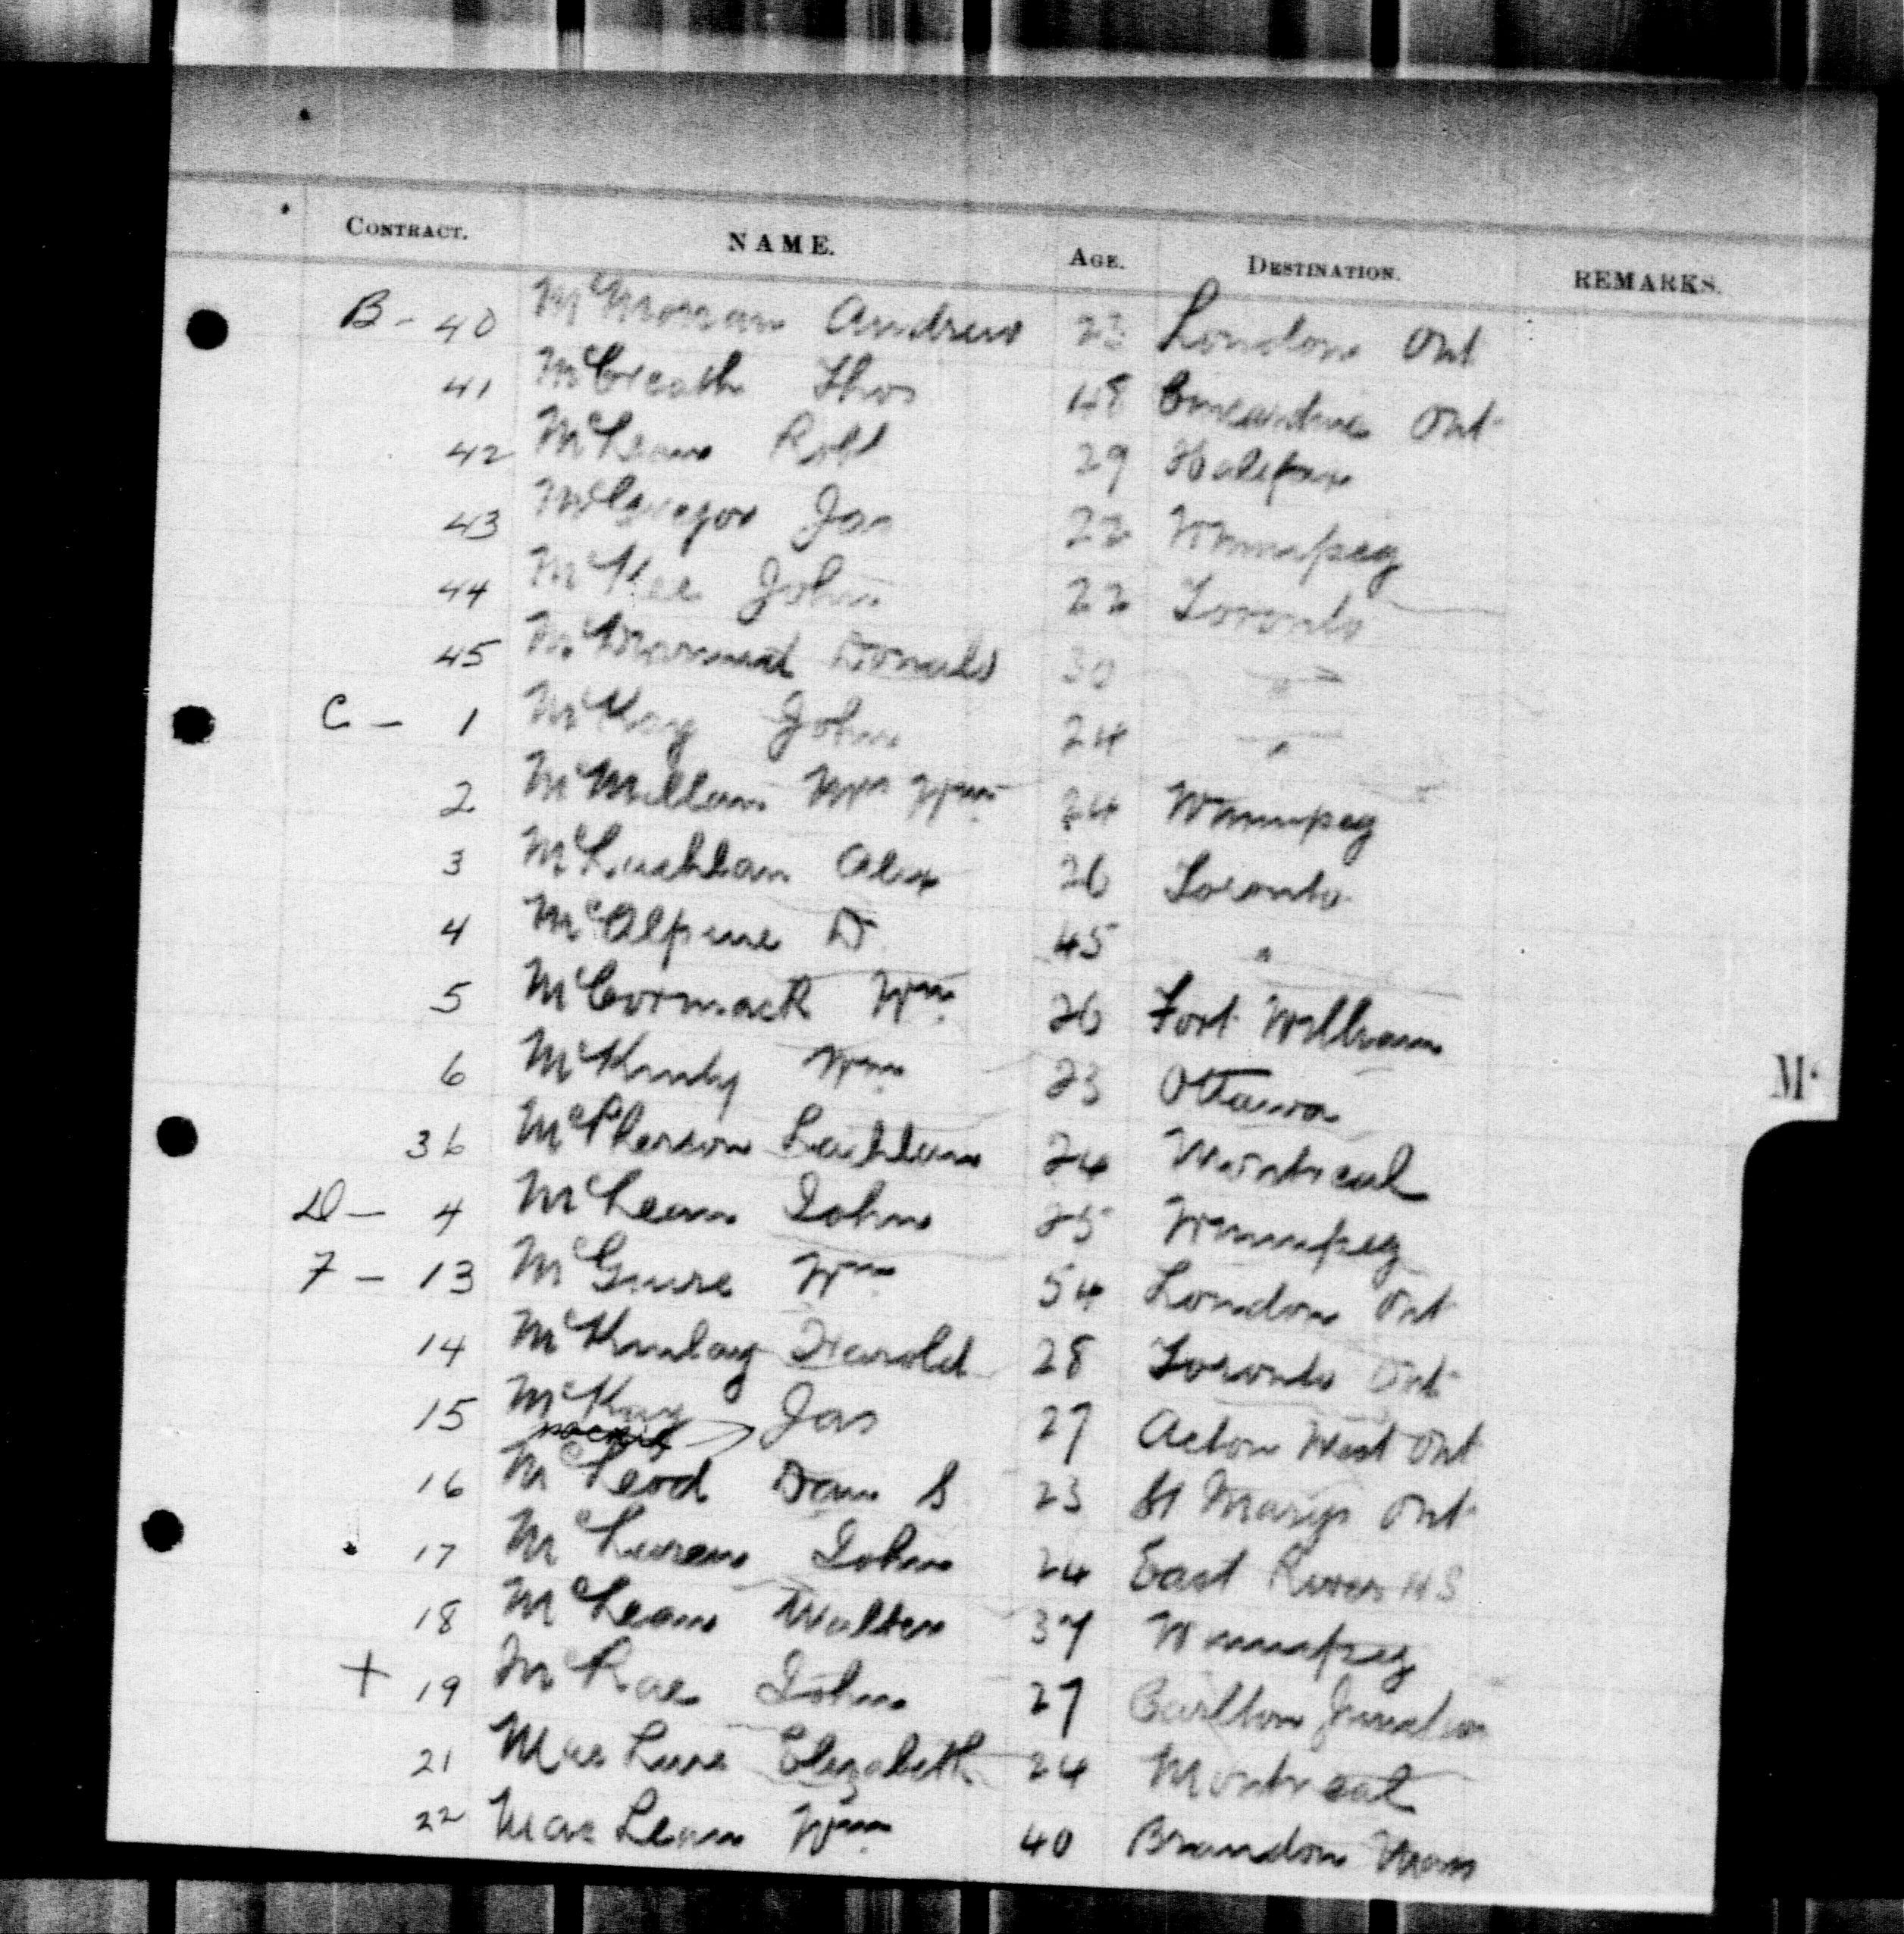 CONTRACT. NAME. AGE. DESTINATION. REMARKS.
B - 40 McMorran Andrew 23 London Ont
41 McCreath Thos 48 Ont
42 McLean Robt 29 Halifax
43 McGregor Jas 22 Winnipeg
44 McKee John 22 Toronto
45 Donald 30 "
C - 1 McKay John 24 "
2 McMillan Mrs Wm 24 Winnipeg
3 McLachlan Alex 26 Toronto
4 McAlpine D 45 "
5 McCormack Wm 26 Fort William
6 Wm 23 Ottawa
36 McPherson Lachlan 24 Montreal
D - 4 McLean John 25 Winnipeg
F - 13 McGuire Wm 54 London Ont
14 McKinlay Harold 28 Toronto Ont
15 McKay Jas 27 Acton West Ont
16 McLeod Dan S 23 St Marys Ont
17 McLaren John 24 East River N S
18 McLean Walter 37 Winnipeg
+ 19 McRae John 27 Carlton Junction
21 MacLure Elizabeth 24 Montreal
22 MacLean Wm 40 Brandon Man
Mc